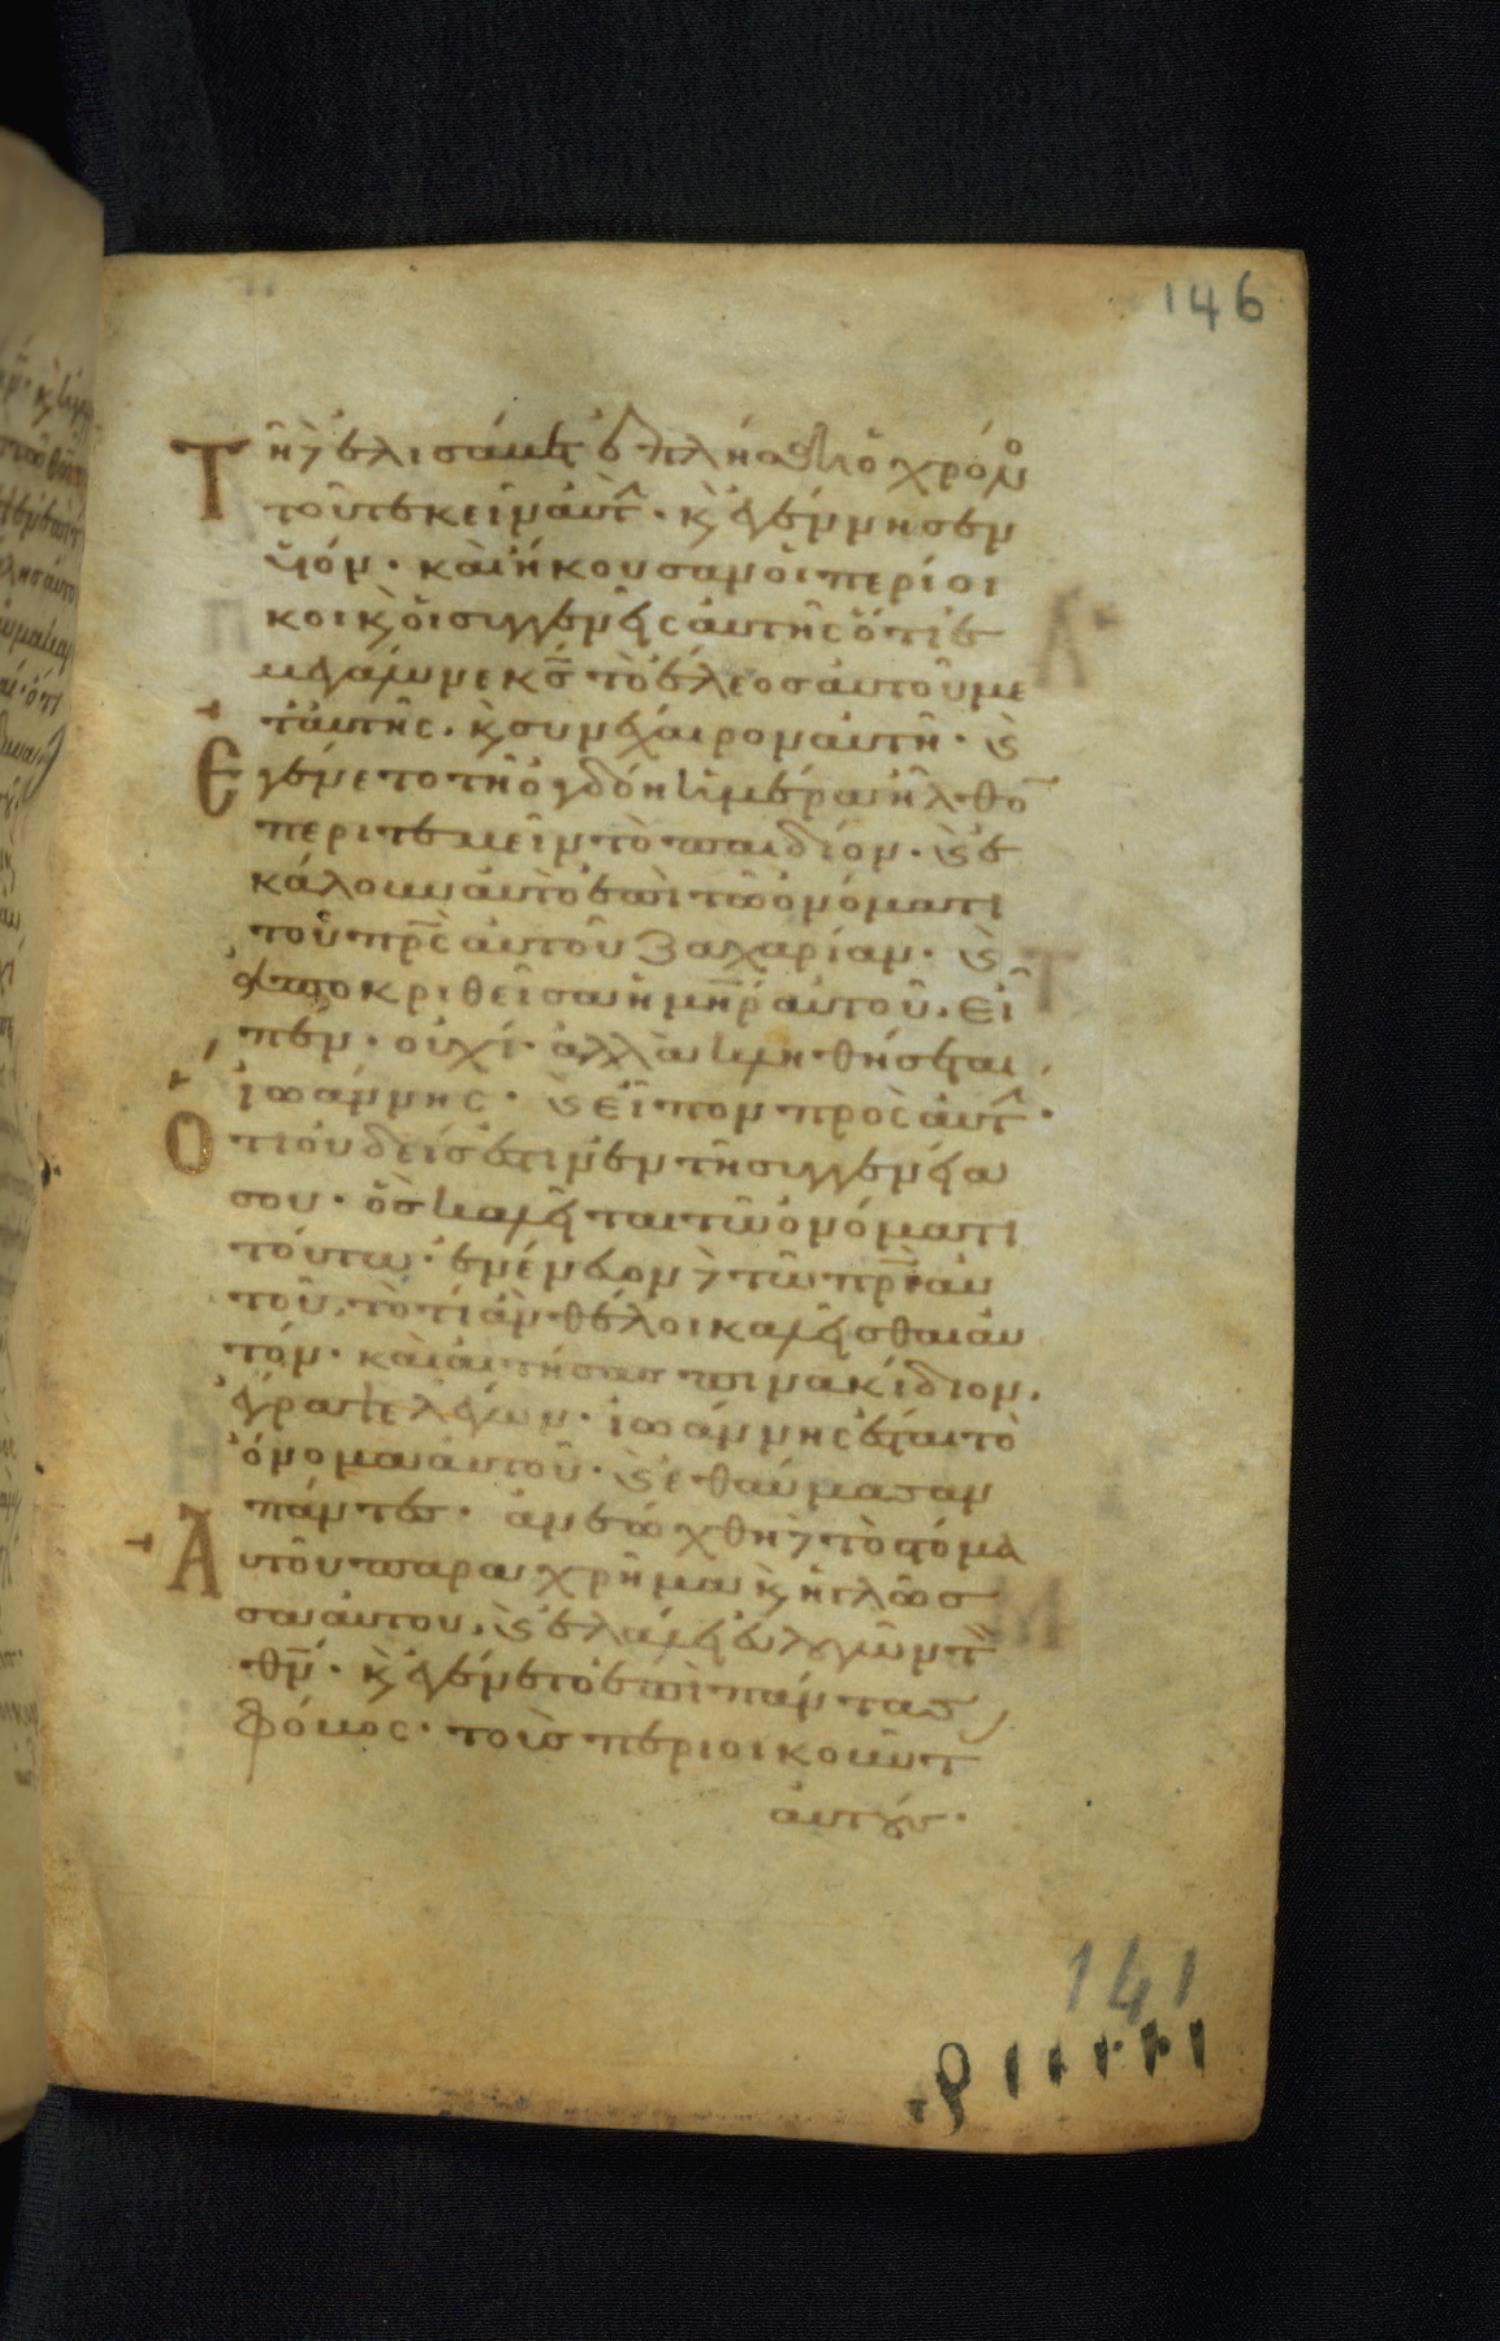 146
Τῆ δὲ ἐλισάβετ ἐπλήσθη ὁ χρόν
τοῦ τεκεῖν ἀυτ · κ̀ ἐγέννησεν
υἱόν · καὶ ἤκουσαν οἱ περίοι
κοι κ̀ οἱ συγγενεῖς ἀυτῆς ὅτι ἐ
μεγάλυνε κς τὸ ἔλεος ἀυτοῦ με
τ ἀυτῆς · κ̀ συνέχαιρον ἀυτῆ · κ̀
Εγένετο τῆ ὀγδόη ἡμέρα ἦλθο
περιτεμεῖν τὸ παιδίον · κ̀ ἐ
κάλουν ἀυτὸ ἐπὶ τῶ ὀνόματι
τοῦ πρς ἀυτοῦ Ζαχαρίαν · κ̀
ἀποκριθεῖσα ἡ μηρ ἀυτοῦ · εἶ
πεν · οὐχί · ἀλλὰ κληθήσεται
ἰωάννης · κ̀ εἶπον πρὸς ἀυτ ·
Οτι ὀυδείς ἐστιν ἐν τῆ συγγενεία
σου · ὃς καλεῖται τῶ ὀνόματι
τούτω · ἐνένευον δὲ τῶ πρι ἀυ
τοῦ, τὸ τί ἂν θέλοι καλεῖσθαι ἀυ
τόν · καὶ αἰτήσας πινακίδιον ·
ἔγραψε λέγων · ἰωάννης ἐστὶ τὸ
ὄνομα ἀυτοῦ · κ̀ ἐθαύμασαν
πάντες · ἀνεώχθη δὲ τὸ στόμα
Αυτοῦ παραχρῆμα κ̀ ἡ γλῶσ
σα ἀυτου, κ̀ ἐλάλει ἐυλογῶν τ
θν · κ̀ ἐγένετο ἐπὶ πάντας
φόβος · τοὺς περιοικοῦντ
ἀυτούς ·
141